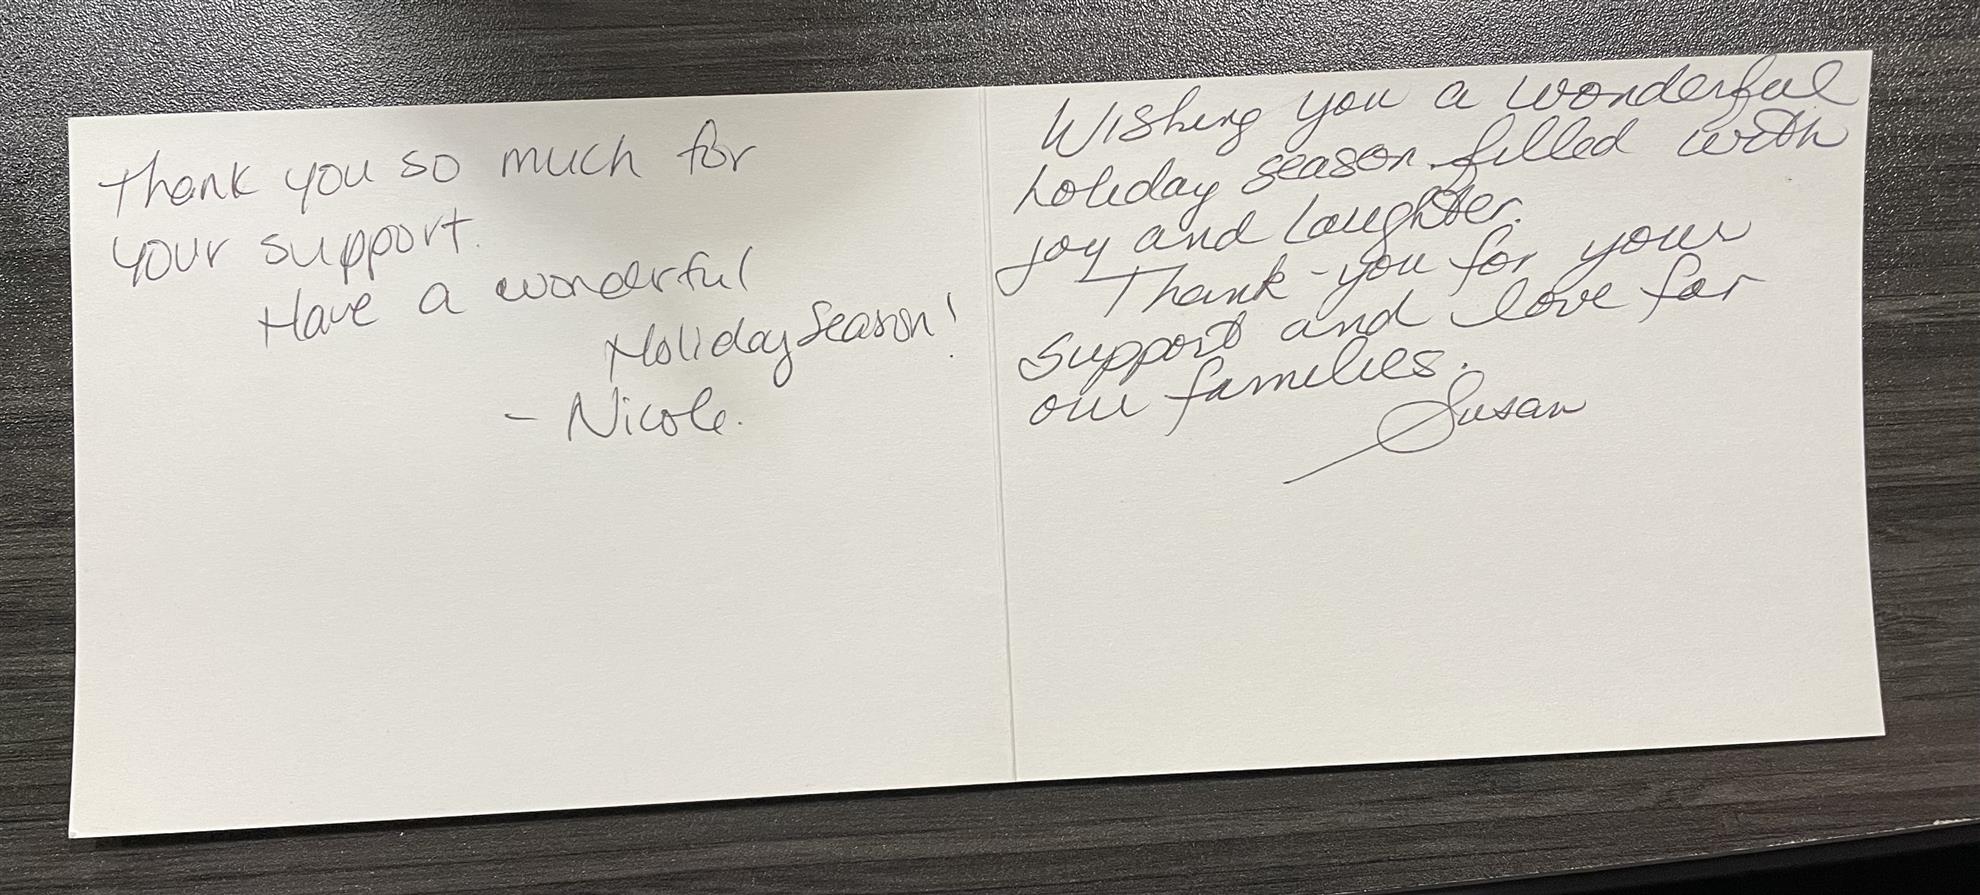 Thank you so much for
your support.
Have a wonderful
Holiday Season!
- Nicole.
Wishing you a wonderful
holiday season filled with
joy and laughter.
Thank-you for your
support and love for
our families.
Susan